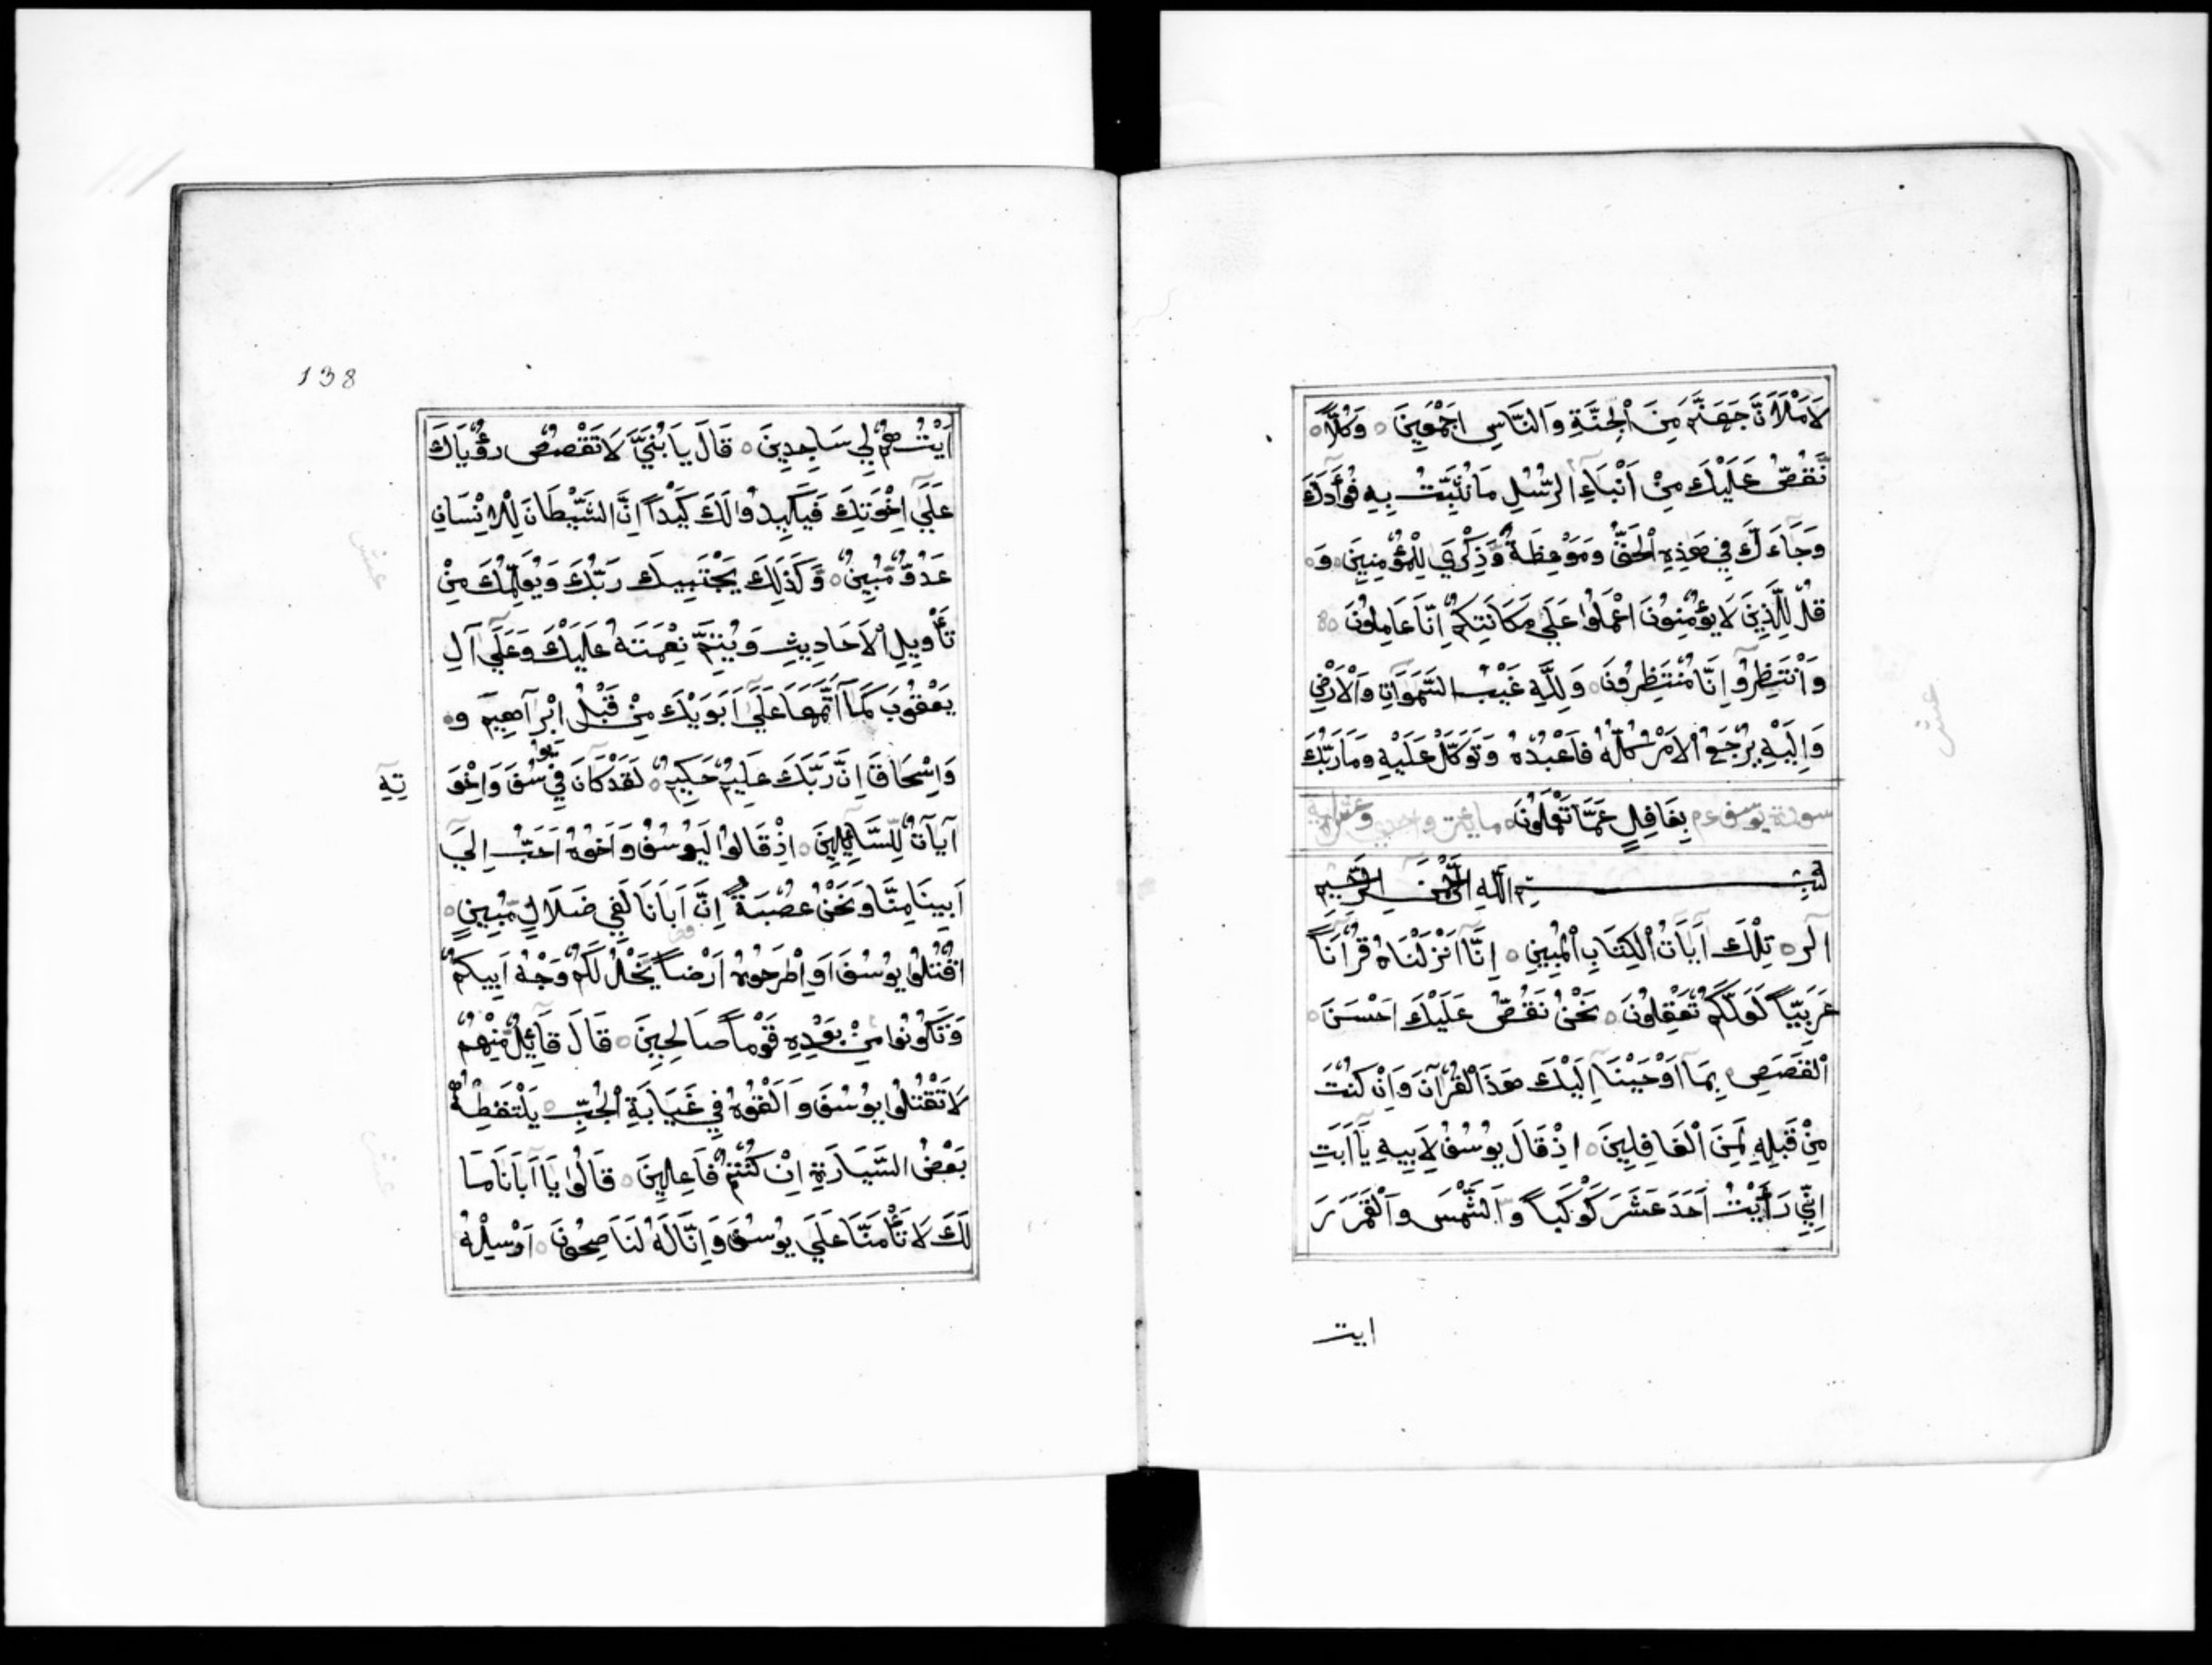 لَاَمْلَاَنَّ جَهَنَّمَ مِنَ الْجِنَّةِ وَالنَّاسِ اَجْمَعِينَ ○ وَكُلًّا ○
نَّقُصُّ عَلَيْكَ مِنْ اَنْبَاءِ الرُّسُلِ مَا نُثَبِّتُ بِهِ فُوأَدَكَ
وَجَاءَكَ فِي هَذِهِ الْحَقُّ وَمَوْعِظَةٌ وَّذِكْرَي لِلْمُؤْمِنِينَ ○ وَ ○
قُلْ لِلَّذِينَ لَا يُؤْمِنُونَ اعْمَلُوا عَلَي مَكَانَتِكُمْ اِنَّا عَامِلُونَ ○
وَانْتَظِرُوا اِنَّا مُنْتَظِرُونَ ○ وَلِلَّهِ غَيْبُ السَّمَوَاتِ وَالْاَرْضِ
وَاِلَيْهِ يُرْجَعُ الْاَمْرُ كُلُّهُ فَاعْبُدْهُ وَتَوَكَّلْ عَلَيْهِ وَمَا رَبُّكَ
سورة يوسف عم بِغَافِلٍ عَمَّا تَعْمَلُونَ ○
بِسْمِ اللَّهِ الرَّحْمَنِ الرَّحِيمِ
الر ○ تِلْكَ آيَاتُ الْكِتَابِ الْمُبِينِ ○ اِنَّا اَنْزَلْنَاهُ قُرْآنًا
عَرَبِيًّا لَعَلَّكُمْ تَعْقِلُونَ ○ نَحْنُ نَقُصُّ عَلَيْكَ اَحْسَنَ ○
الْقَصَصِ بِمَا اَوْحَيْنَا اِلَيْكَ هَذَا الْقُرْآنَ وَاِنْ كُنْتَ
مِنْ قَبْلِهِ لَمِنَ الْغَافِلِينَ ○ اِذْ قَالَ يُوسُفُ لِاَبِيهِ يَا اَبَتِ
اِنِّي رَأَيْتُ اَحَدَ عَشَرَ كَوْكَبًا وَالشَّمْسَ وَالْقَمَرَ رَ
ايت
138
اَيْتُهُمْ لِي سَاجِدِينَ ○ قَالَ يَا بُنَيَّ لَا تَقْصُصْ رُؤْيَاكَ
عَلَي اِخْوَتِكَ فَيَكِيدُوا لَكَ كَيْدًا اِنَّ الشَّيْطَانَ لِلْاِنْسَانِ
عَدُوٌّ مُّبِينٌ ○ وَّكَذَلِكَ يَجْتَبِيكَ رَبُّكَ وَيُعَلِّمُكَ مِنْ
تَأْوِيلِ الْاَحَادِيثِ وَيُتِمُّ نِعْمَتَهُ عَلَيْكَ وَعَلَي آلِ
يَعْقُوبَ كَمَا اَتَمَّهَا عَلَي اَبَوَيْكَ مِنْ قَبْلُ اِبْرَاهِيمَ وَ ○
وَاِسْحَاقَ اِنَّ رَبَّكَ عَلِيمٌ حَكِيمٌ ○ لَقَدْ كَانَ فِي يُوسُفَ وَاِخْوَ
تِهِ
آيَاتٌ لِلسَّائِلِينَ ○ اِذْ قَالُوا لَيُوسُفُ وَاَخُوهُ اَحَبُّ اِلَي
اَبِينَا مِنَّا وَنَحْنُ عُصْبَةٌ اِنَّ اَبَانَا لَفِي ضَلَالٍ مُّبِينٍ ○
اقْتُلُوا يُوسُفَ اَوِ اطْرَحُوهُ اَرْضًا يَخْلُ لَكُمْ وَجْهُ اَبِيكُمْ
وَتَكُونُوا مِنْ بَعْدِهِ قَوْمًا صَالِحِينَ ○ قَالَ قَائِلٌ مِّنْهُمْ
لَا تَقْتُلُوا يُوسُفَ وَاَلْقُوهُ فِي غَيَابَةِ الْجُبِّ ○ يَلْتَقِطْهُ
بَعْضُ السَّيَّارَةِ اِنْ كُنْتُمْ فَاعِلِينَ ○ قَالُوا يَا اَبَانَا مَا
لَكَ لَا تَأْمَنَّا عَلَي يُوسُفَ وَاِنَّا لَهُ لَنَاصِحُونَ ○ اَرْسِلْهُ